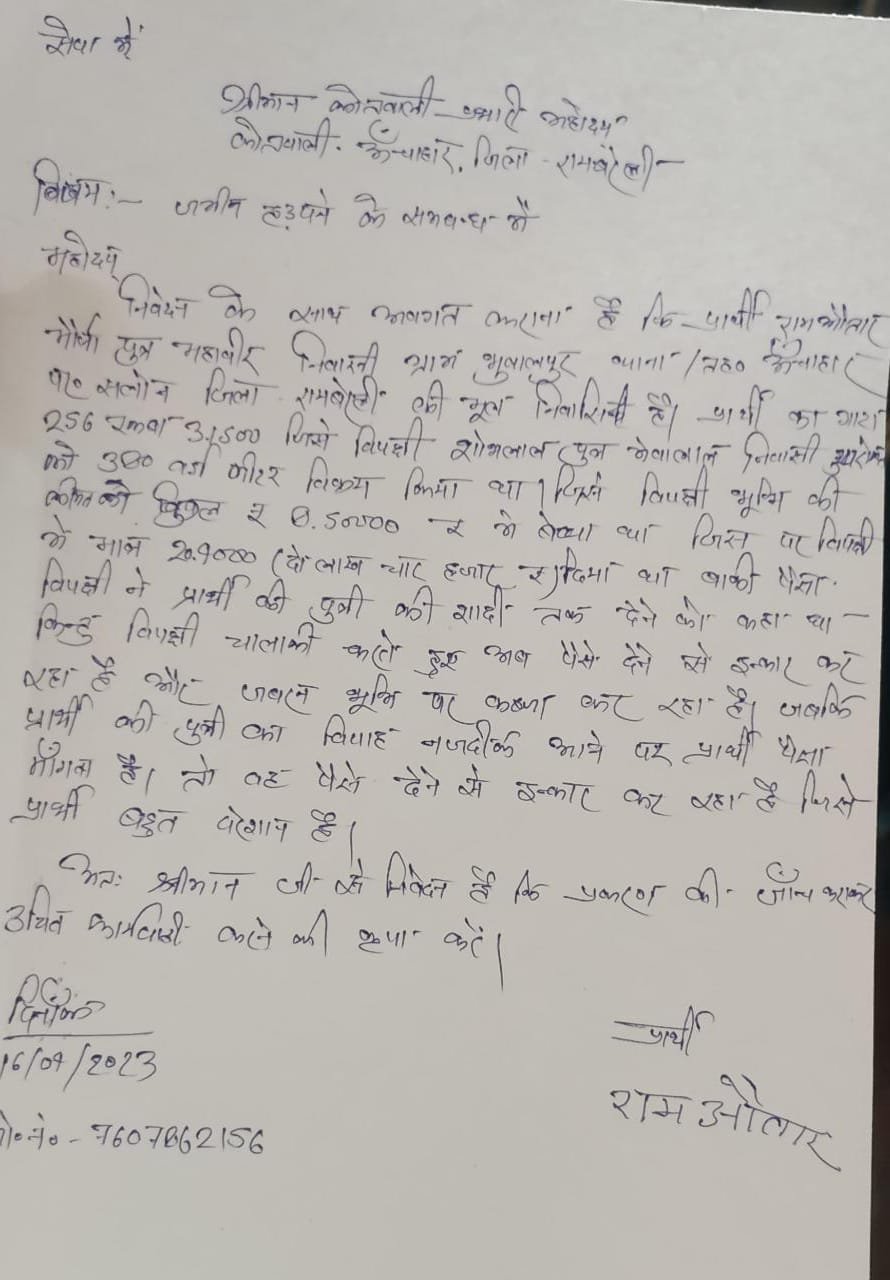 सेवा में
श्रीमान कोतवाली प्रभारी महोदय
कोतवाली - ऊँचाहार, जिला - रायबरेली
विषय :- जमीन हड़पने के सम्बन्ध में
महोदय
निवेदन के साथ अवगत कराना है कि प्रार्थी राम औतार
मौर्या पुत्र महावीर निवासी ग्राम भुवालपुर थाना / तह० ऊँचाहार
पर० सलोन जिला रायबरेली की मूल निवासिनी है। प्रार्थी का गाटा
256 रकबा 3.1500 जिसे विपक्षी शोभलाल पुत्र मेवालाल निवासी
को 380 वर्ग मीटर विक्रय किया था। जिसे विपक्षी भूमि की
कीमत को कुल ₹ 8.50000 रु में बेचा था जिस पर विपक्षी
ने मात्र 20.4000 (दो लाख चार हजार रु) दिया था बाकी पैसा
विपक्षी ने प्रार्थी की पुत्री की शादी तक देने को कहा था -
किन्तु विपक्षी चालाकी करते हुए अब पैसे देने से इन्कार कर
रहा है और जबरन भूमि पर कब्जा कर रहा है। जबकि
प्रार्थी की पुत्री का विवाह नजदीक आने पर प्रार्थी पैसा
माँगता है। तो वह पैसे देने से इन्कार कर रहा है जिससे
प्रार्थी बहुत परेशान है।
अतः श्रीमान जी से निवेदन है कि प्रकरण की जाँच कराकर
उचित कार्यवाही करने की कृपा करें।
दिनाँक
16/04/2023
प्रार्थी
राम औतार
मो०नं० - 7607862156